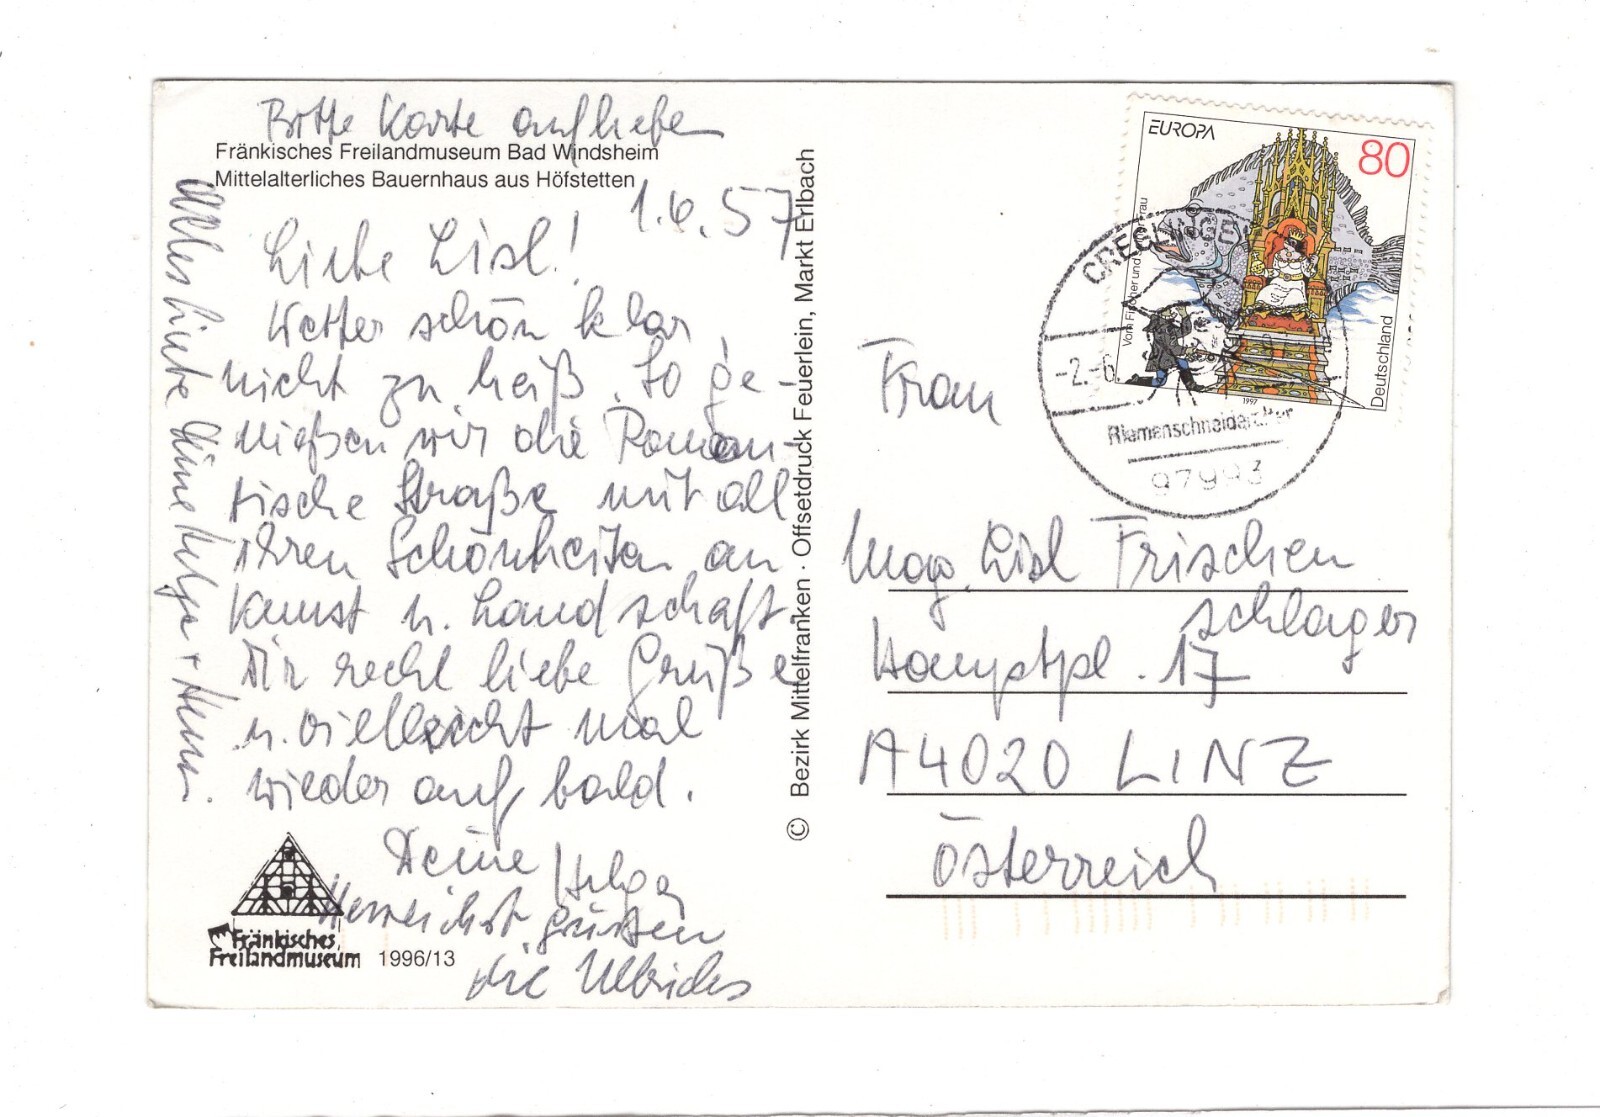 Bitte Karte aufheben
Fränkisches Freilandmuseum Bad Windsheim
Mittelalterliches Bauernhaus aus Höfstetten
1.6.57
Liebe Lisl!
Wetter schön klar,
nicht zu heiß. So ge-
nießen wir die Roman-
tische Straße mit all
ihren Schönheiten an
Kunst u. Landschaft
Dir recht liebe Grüße
u. vielleicht mal
wieder auf bald.
Deine Helga
grüßen
die
Alles Liebe Deine Helga +
Fränkisches
Freilandmuseum
1996/13
© Bezirk Mittelfranken · Offsetdruck Feuerlein, Markt Erlbach
EUROPA
80
Vom Fischer und seiner Frau
Deutschland
1997
CREGLINGEN
-2.-6
Riemenschneideraltar
97993
Frau
Mag. Lisl Frischen
schlager
Hauptpl. 17
A 4020 LINZ
Österreich